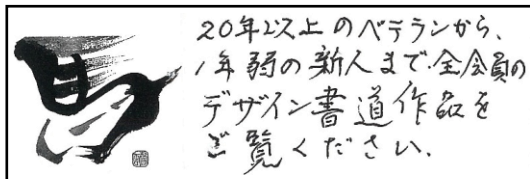 20年以上のベテランから、
1年弱の新人まで全会員の
デザイン書道作品を
ご覧ください。